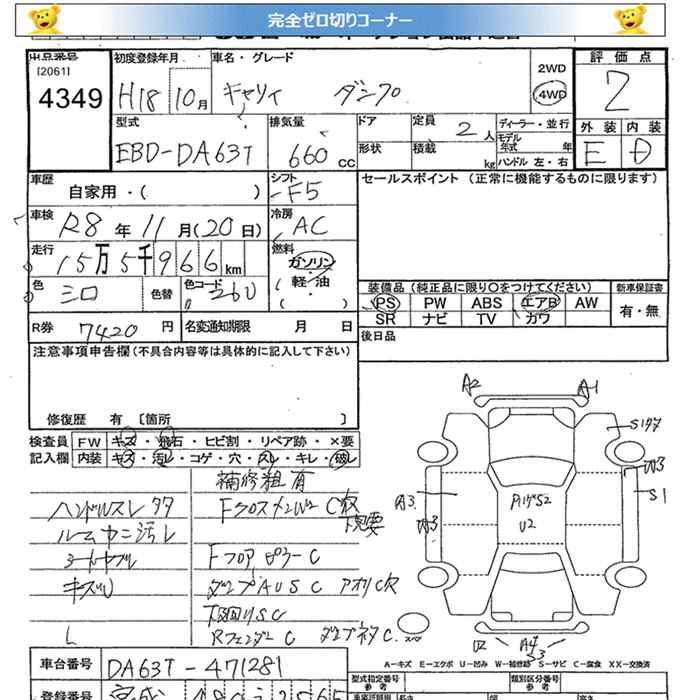 完全ゼロ切りコーナー
出品番号
[2061]
4349
初度登録年月
H18 10月
車名・グレード
キャリィ ダンプ
2WD
4WD
評価点
2
型式
EBD-DA63T
排気量
660 cc
ドア
形状
定員
2人
積載
kg
ディーラー・並行
モデル年式 年
ハンドル 左・右
外装 内装
E D
車歴
自家用・( )
シフト
F5
セールスポイント (正常に機能するものに限ります)
車検
R8年11月(20日)
冷房
AC
走行
15万5千966km
燃料
ガソリン
(軽・油)
色
シロ
色替
色コード
26U
装備品 (純正品に限り○をつけてください)
新車保証書
PS PW ABS エアB AW
SR ナビ TV カワ
有・無
R券 7420円
名変通知期限 月 日
後日品
注意事項申告欄(不具合内容等は具体的に記入して下さい)
修復歴 有 〔箇所 〕
検査員記入欄
FW キズ・飛石・ヒビ割・リペア跡・×要
内装 キズ・汚レ・コゲ・穴・スレ・キレ・破レ
補修粗有
ハンドルスレ タタ
ルームカニ汚レ
シートヤブレ
キズU
Fクロスメンバ C穴
下廻要
Fフロア ピラーC
ダンプAUSC アオリC穴
下廻りSC
RフェンダーC
A2 A1
A3
A3
W3
S1
U2
A-キズ E-エクボ U-凹み W-補修跡 S-サビ C-腐食 XX-交換済
車台番号
DA63T-471281
登録番号
型式指定番号
参考
類別区分番号
参考